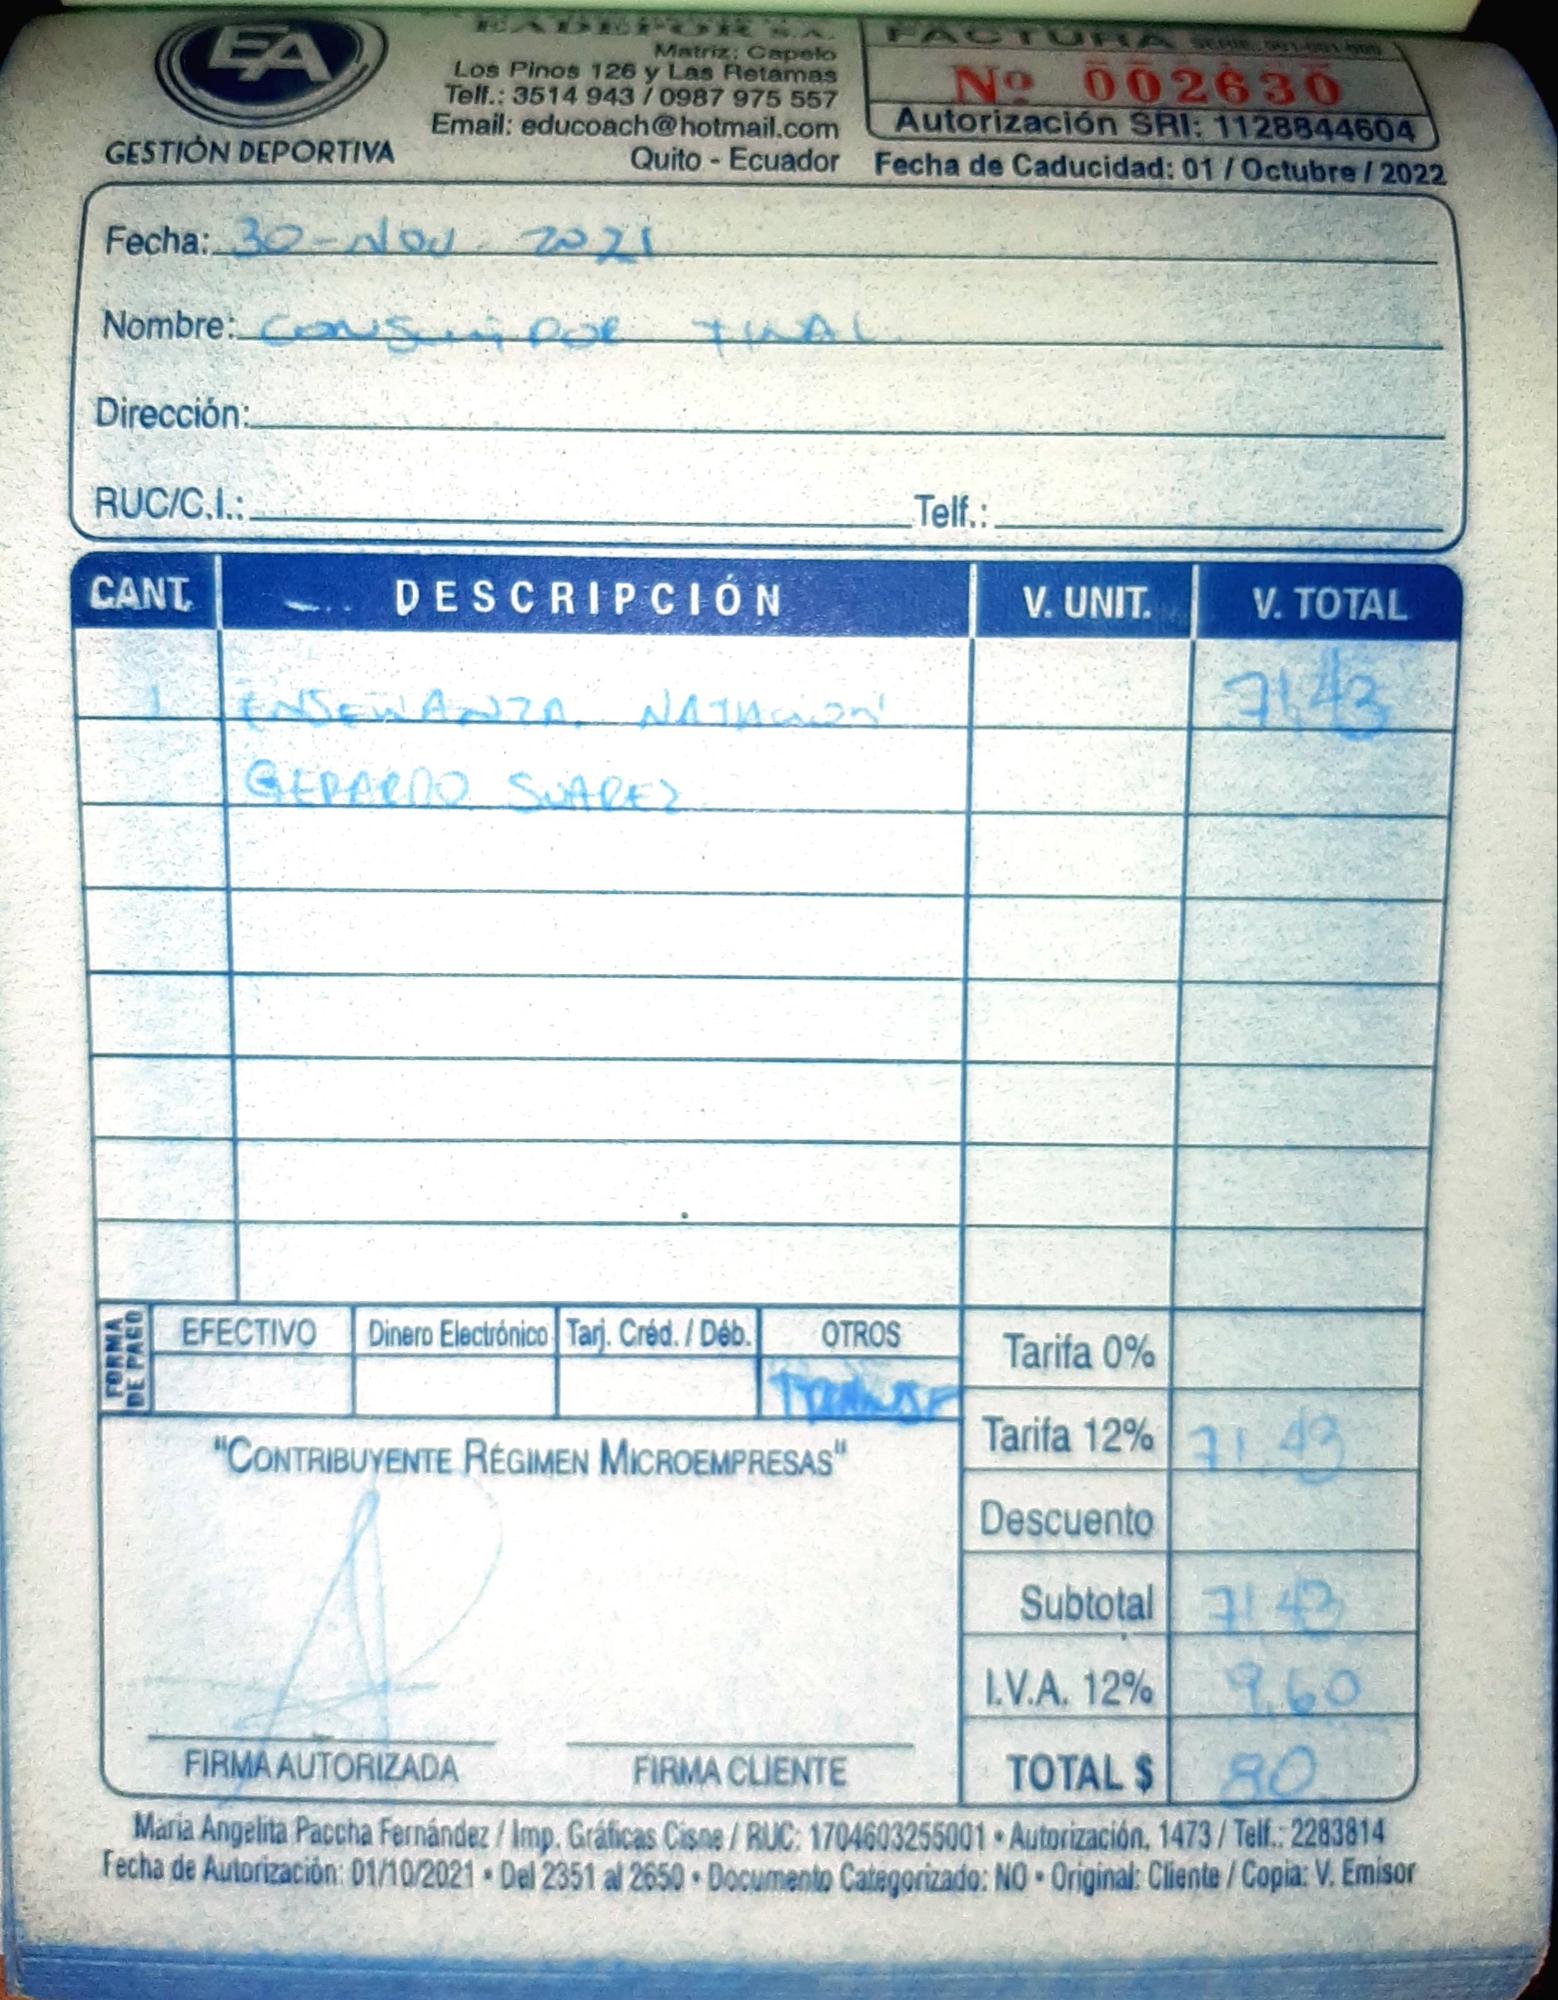 EA
GESTIÓN DEPORTIVA
EADEPOR S.A.
Matriz: Capelo
Los Pinos 126 y Las Retamas
Telf.: 3514 943 / 0987 975 557
Email: educoach@hotmail.com
Quito - Ecuador
FACTURA
Nº 002630
Autorización SRI: 1128844604
Fecha de Caducidad: 01 / Octubre / 2022
Fecha: 30-NOV 2021
Nombre: CONSUMIDOR FINAL
Dirección:
RUC/C.I.: Telf.:
CANT. DESCRIPCIÓN V. UNIT. V. TOTAL
1 ENSEÑANZA NATACIÓN 71,43
GERARDO SUAREZ
FORMA DE PAGO
EFECTIVO Dinero Electrónico Tarj. Créd. / Déb. OTROS
TRANSF
Tarifa 0%
Tarifa 12% 71.43
Descuento
Subtotal 71.43
I.V.A. 12% 9.60
TOTAL $ 80
"CONTRIBUYENTE RÉGIMEN MICROEMPRESAS"
FIRMA AUTORIZADA FIRMA CLIENTE
Maria Angelita Paccha Fernández / Imp. Gráficas Cisne / RUC: 1704603255001 • Autorización. 1473 / Telf.: 2283814
Fecha de Autorización: 01/10/2021 • Del 2351 al 2650 • Documento Categorizado: NO • Original: Cliente / Copia: V. Emisor